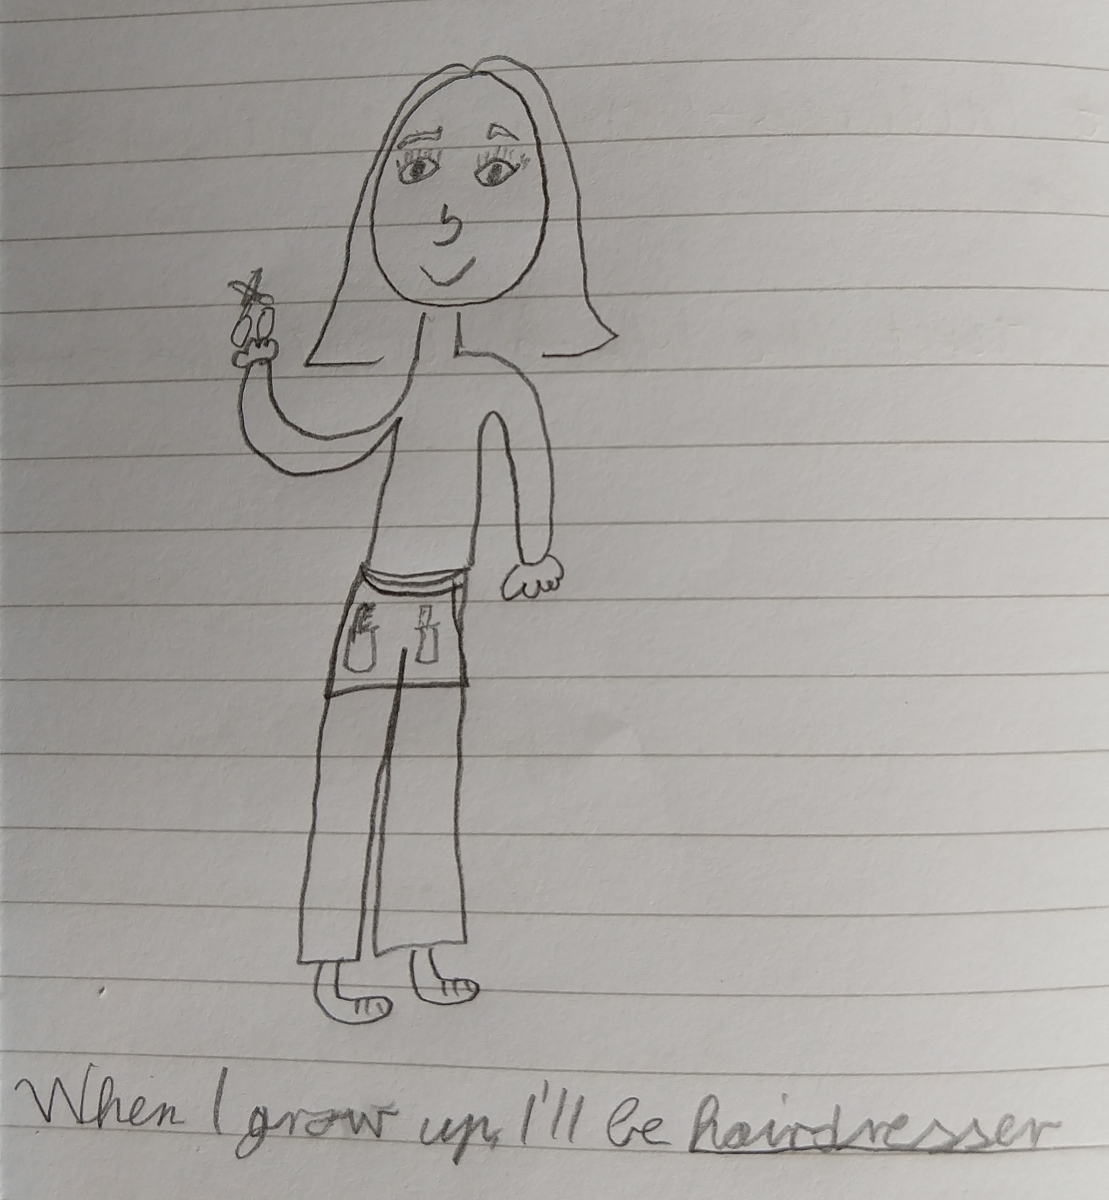 When I grow up, I'll be hairdresser